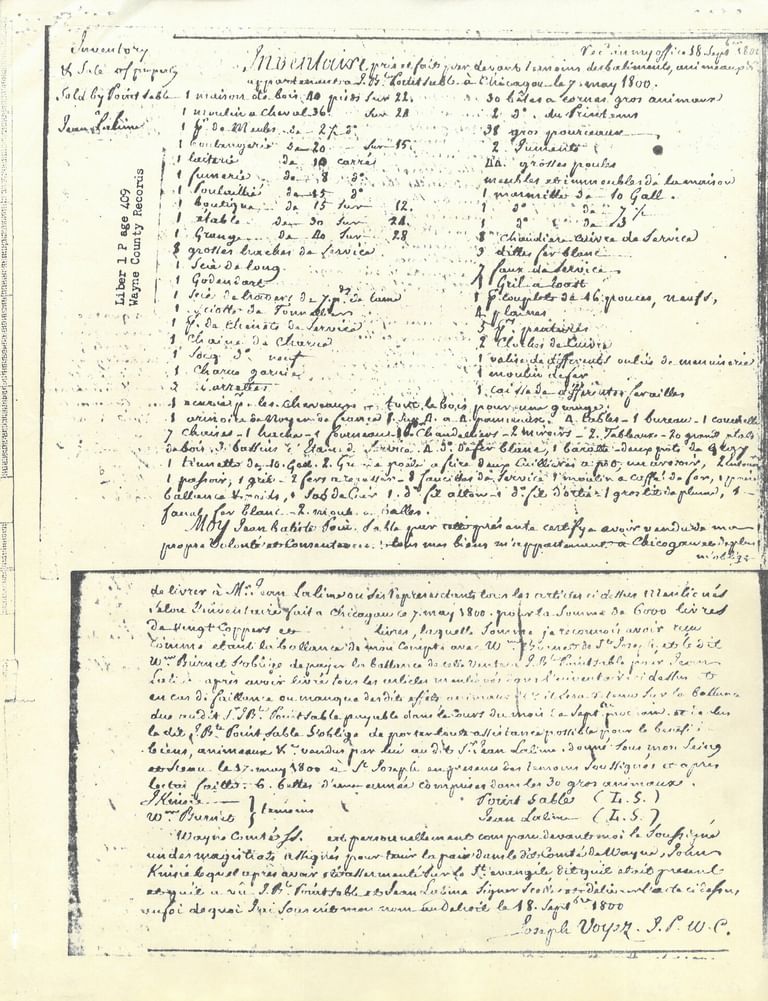 Inventory
& Sale of property
Sold by Point Sable
Jean Lalime
Liber 1 Page 409
Wayne County Records
Rec. in my office 18 Sept 
Inventaire pris et fait par devant temoins des batiments, animeaux
appartenant a J. Bt. Pointsable à Chicagou le 7. may 1800.
1 maison de bois 40 pieds Sur 22.
1 moulin a Cheval 36. Sur 24
1 p. de Meules de 2½ do
1 boulangerie de 20 Sur 15.
1 laiterie de 10 carrés
1 fumerie de 8 do
1 poulaillé de 15 do
1 boutique de 15 Sur 12.
1 etable de 30 Sur 24.
1 Grange de 40 Sur 28
8 grosses haches de Service
1 Scie de long.
1 Godendart
1 Scie de travers de 7. pds de lame
1 de Tonnelier
1 p. de Chenets de Service
1 Chaine de Charue
1 Socq do neuf
1 Charue garnie
2 Carrettes
30 bêtes a cornes gros animaux
2 do. du Printems
38 gros pourceaux
2 Juments
44 grosses poules
meubles et immeubles de la maison
1 marmitte de 10 Gall.
1 do de 7½
1 do de 3
8 Chaudiere Cuivre de Service
3 dilles fer blanc
7 faux de Service
1 Gril a Toost
1 p. couplets de 16 pouces, neufs,
4 plaines
5 pr. pentures
2 Cloches de Cuivre
1 valise de differents outils de menuiserie
1 moulin de fer
1 caisse de differentes ferailles
1 ecurie pr. les Chevaux - tout le bois pour une grange.
1 armoire de Noyer de france 4. tables - 1 bureau - 1 couchette
7 Chaises - 1 - 1 fourneau Chandelliers - 2 miroirs - 2. Tableaux - 20 grands plats
de bois. 3. bassins d'Etain de Service. 4 do. de fer blanc, 1 baratte - deux pots de Grey
1 Tinnette de 10. Gall. a feu deux Cuillieres a pot, un arosoir, 2
1 passoir, 1 gril - 2 fers a repasser - 8 faucilles de Service 1 moulin a Caffé de fer, 1
ballance & poids, 1 Sas de Crin 1. do fil alton - 1 do fil d'ortie 1 gros lit de plume, 1
fanal fer blanc - 2. moule a balles.
Moy Jean Batiste Poin Sable par cette présente certifye avoir vendu de ma
propre volonté et Consentement tous mes biens m'appartenant a Chicogou et de plus
m'oblige
de livrer à Mr. Jean Lalime ou ses representants tous les articles ci dessus Mentionés
Selon l'inventaire fait a Chicagou le 7. may 1800. pour la Somme de 6000 livres
de vingt Coppers et livres, laquelle Somme je reconnois avoir reçu
comme etant la ballance de mon Compte avec Wm Burnet de St. Joseph, et le dit
Wm Burnet s'oblige de payer la ballance de cette vente a J. Bt. Pointsable pour Jean
Lalime après avoir livré tous les articles mentionés dans l'inventaire ci dessus et
en cas de faillance ou manque des dits effets animaux il sera retenu Sur la ballance
due au dit Sr. J. Bt. Pointsable payable dans le cours du mois de Septbre prochain, et de plus
le dit J. Bt. Point Sable s'oblige de porter toute assistance possible pour le benefice
biens, animeaux &c. vendus par lui au dit Sr. Jean Lalime. donné Sous mon Seing
et Sceau le 17. may 1800 a St Joseph en presence des temoins Soussignés et après
lecture faitte. 6. bettes d'une année comprises dans les 30 gros animaux.
J Kinzie } temoins
Wm. Burnet
Point Sable ( L. S. )
Jean Lalime ( L. S. )
Wayne Comté SS. est personellement comparu devant moi le Soussigné
un des magistrats assignés pour tenir la paix dans le dit Comté de Wayne, John
Kinzie lequel après avoir eté assermenté Sur le St. evangile dit qu'il etait present
et qu'il a vû J. Bt. Pointsable et Jean Lalime Signer Scelé et delivrer l'acte ci dessus,
en foi de quoi J'ai Souscrit mon nom au Detroit le 18. Septbre 1800
Joseph Voyez. J. P. W. C.